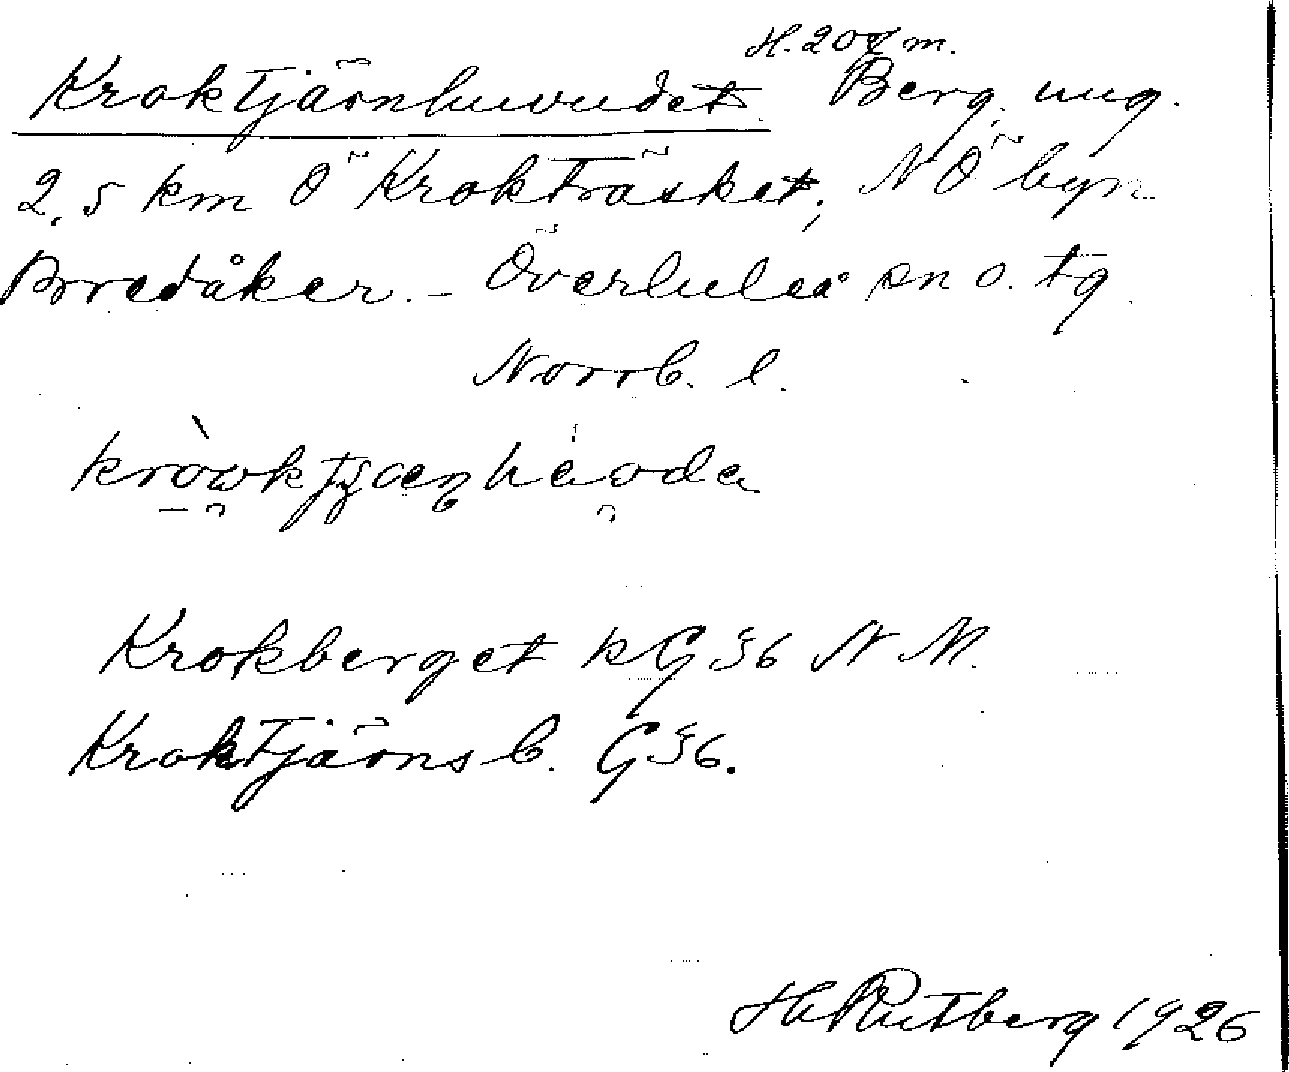 H. 20 m.
Kroktjärnhuvudet Berg. ung.
2,5 km Ö Kroktråsket, NÖ byn
Bredåker. - Överluleå sn o. tg
Norrb. l.
Krokberget kG 36 N M.
Kroktjärnsb. G 36.
H Rutberg 1926